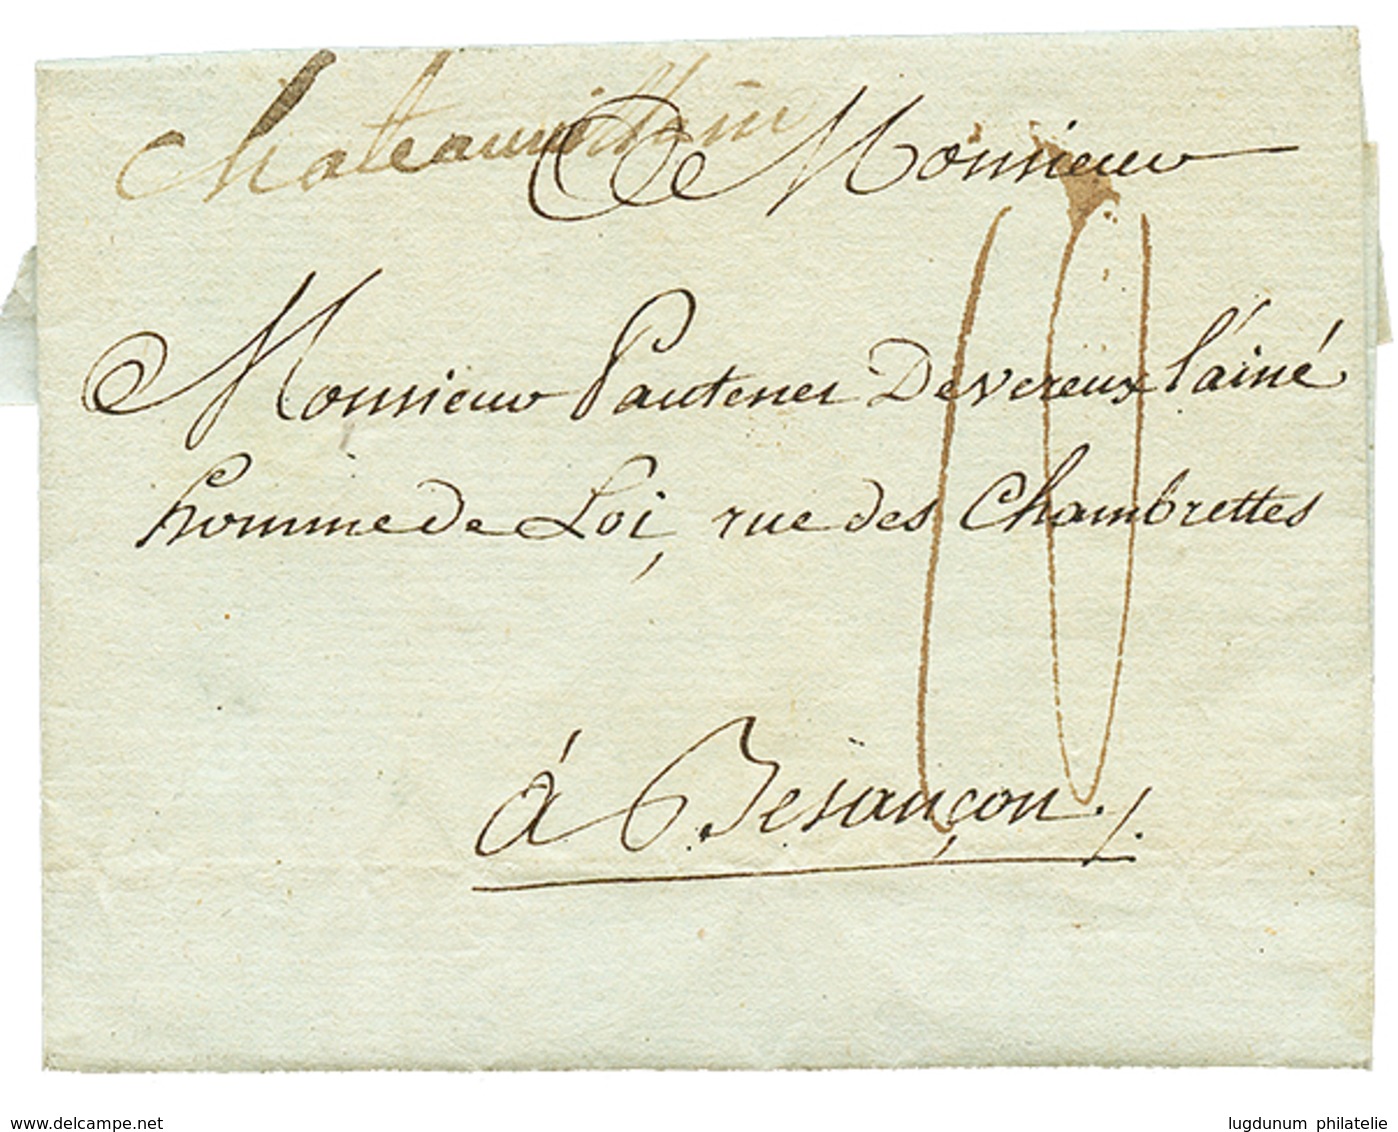 Chateauvillain
A Monsieur
Monsieur Pautenet Devereux l'ainé
homme de Loi, rue des Chambrettes
10
à Besançon ./.
www.delcampe.net
lugdunum philatelie